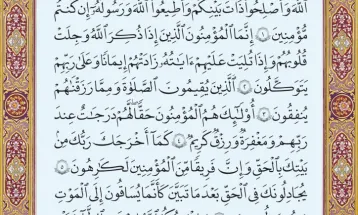 ٱللَّهَ وَأَصۡلِحُواْ ذَاتَ بَيۡنِكُمۡۖ وَأَطِيعُواْ ٱللَّهَ وَرَسُولَهُۥٓ إِن كُنتُم
مُّؤۡمِنِينَ ١ إِنَّمَا ٱلۡمُؤۡمِنُونَ ٱلَّذِينَ إِذَا ذُكِرَ ٱللَّهُ وَجِلَتۡ
قُلُوبُهُمۡ وَإِذَا تُلِيَتۡ عَلَيۡهِمۡ ءَايَٰتُهُۥ زَادَتۡهُمۡ إِيمَٰنٗا وَعَلَىٰ رَبِّهِمۡ
يَتَوَكَّلُونَ ٢ ٱلَّذِينَ يُقِيمُونَ ٱلصَّلَوٰةَ وَمِمَّا رَزَقۡنَٰهُمۡ
يُنفِقُونَ ٣ أُوْلَٰٓئِكَ هُمُ ٱلۡمُؤۡمِنُونَ حَقّٗاۚ لَّهُمۡ دَرَجَٰتٌ عِندَ
رَبِّهِمۡ وَمَغۡفِرَةٞ وَرِزۡقٞ كَرِيمٞ ٤ كَمَآ أَخۡرَجَكَ رَبُّكَ مِنۢ
بَيۡتِكَ بِٱلۡحَقِّ وَإِنَّ فَرِيقٗا مِّنَ ٱلۡمُؤۡمِنِينَ لَكَٰرِهُونَ ٥
يُجَٰدِلُونَكَ فِي ٱلۡحَقِّ بَعۡدَ مَا تَبَيَّنَ كَأَنَّمَا يُسَاقُونَ إِلَى ٱلۡمَوۡتِ